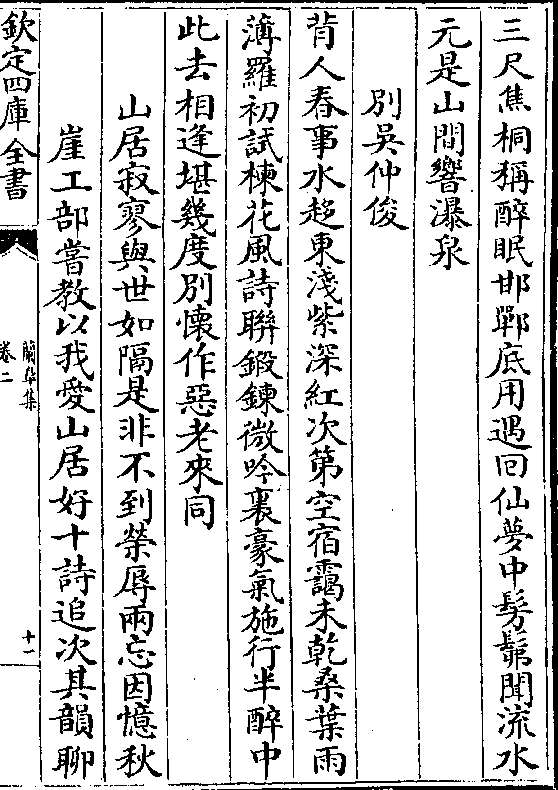 三尺焦桐稱醉眠邯鄲底用遇回仙夢中髣髴聞流水
元是山間響瀑泉
別吳仲俊
背人春事水趍東淺紫深紅次第空宿靄未乾桑葉雨
薄羅初試楝花風詩聯鍛鍊微吟裏豪氣施行半醉中
此去相逢堪幾度別懷作惡老來同
山居寂寥與世如隔是非不到榮辱兩忘因憶秋
崖工部嘗教以我愛山居好十詩追次其韻聊
欽定四庫全書
蘭皐集
卷二
十一